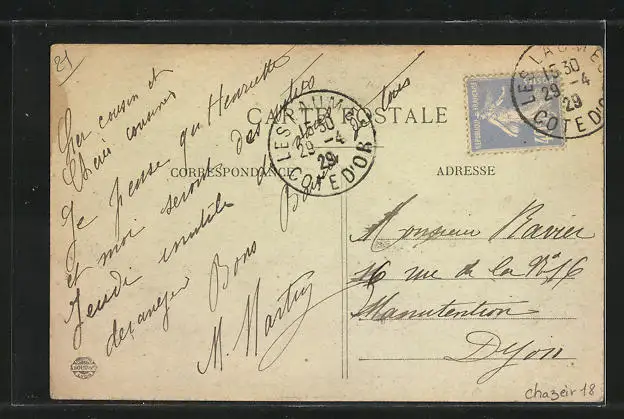 21
CARTE POSTALE
CORRESPONDANCE
ADRESSE
Cher cousin et
Chère cousine
Je pense qu'Henriette
et moi serons des vôtres
Jeudi inutile de
déranger
Bons Baisers à tous
M. Martin
LES LAUMES
15 30
29 -4
29
COTE D'OR
LES LAUMES
15 30
29 -4
29
COTE D'OR
REPUBLIQUE FRANÇAISE
Monsieur Ravier
16 rue de la
Manutention
Dijon
chazeir 18